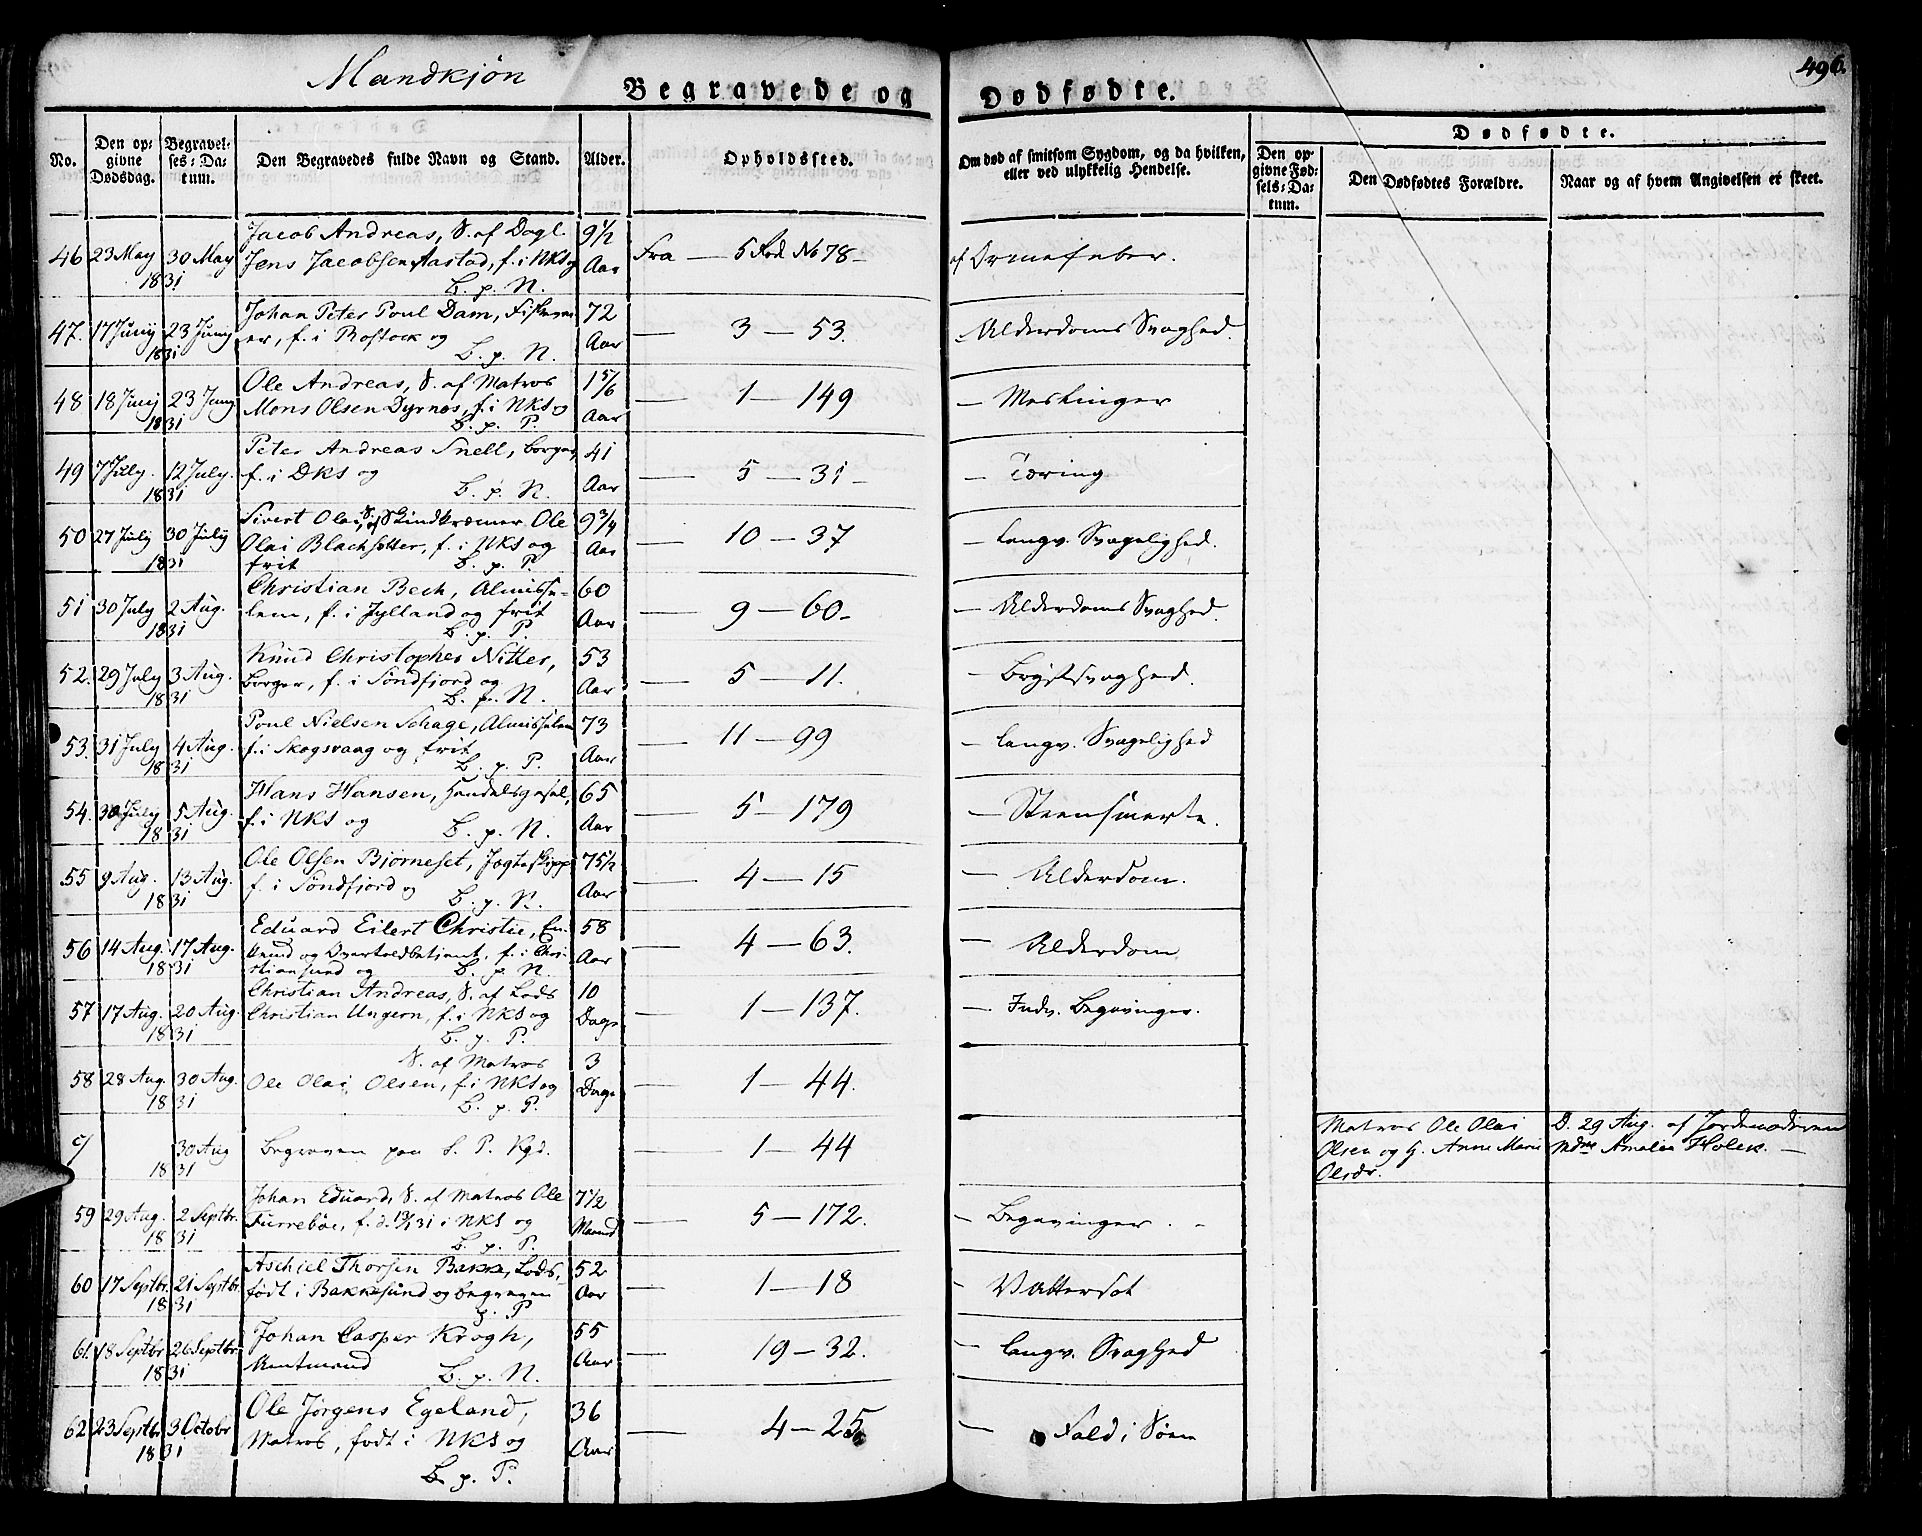 Mandkjøn
Begravede og Dødfødte.
496.
No.
Den op-
givne
Dødsdag.
Begravel-
ses-Da-
tum.
Den Begravedes fulde Navn og Stand.
Alder.
Opholdssted.
Om død af smitsom Sygdom, og da hvilken,
eller ved ulykkelig Hendelse.
Dødfødte.
Den op-
givne Fød-
sels-Da-
tum.
Den Dødfødtes Forældre.
Naar og af hvem Angivelsen er skeet.
46 23 May 30 May 1831 Jacob Andreas, S. af Dagl.
Jens Jacobsen Aastad, f. i NKS og
B. p. N. 9½ Aar Fra — 5 Rod No 78 — af Ormefeber.
47. 17 Juny 23 Juny 1831 Johan Peter Poul Dam,
er, f. i Rostock og
B. p. N. 72 Aar — 3 — 53. Alderdoms Svaghed.
48 18 Junij 23 Juny 1831 Ole Andreas, S. af Matros
Mons Olsen Dyrnes, f. i NKS og
B. p. P. 1 5/6 Aar — 1 — 149 — Meslinger
49 7 July. 12 July. 1831 Peter Andreas Snell, Borger,
f. i DKS og
B. p. N. 41 Aar — 5 — 31 — — Tæring
50 27 July 30 July 1831 Sivert Olai, S. af Skindkræmer Ole
Olai Blachsötter, f. i NKS og
frit B. p. P. 9¾ Aar — 10 — 37 — langv. Svagelighed.
51 30 July 2 Aug. 1831 Christian Bech, Almisse-
lem, f. i Jylland og frit
B. p. P. 60 Aar — 9 — 60 — — Alderdoms Svaghed.
52. 29 July 3 Aug. 1831 Knud Christopher Nitter,
Borger, f. i Söndfjord og
B. p. N. 53 Aar — 5 — 11. — Brystsvaghed.
53. 31 July 4 Aug. 1831 Poul Nielsen Schage, Almisselem
f. i Skogsvaag og frit
B. p. P. 73 Aar — 11 — 99 — langv. Svagelighed
54. 30 July 5 Aug. 1831 Hans Hansen, Handelsgesel,
f. i NKS og B. p. N. 65 Aar — 5 — 179 — Steensmerte.
55 9 Aug. 13 Aug. 1831 Ole Olsen Biörneset, Jagteskipp
f. i Söndfjord og
B. p. N. 75½ Aar — 4 — 15 — Alderdom.
56 14 Aug. 17 Aug. 1831 Eduard Eilert Christie, En-
kemd og Overtoldbetjent, f. i Chri-
stiansund og B. p. N. 58 Aar — 4 — 63. — Alderdom
57 17 Aug. 20 Aug. 1831 Christian Andreas, S. af Lods
Christian Ungern, f. i NKS og
B. p. P. 10 Dage — 1 — 137. — Indv. Begavinger.
58 28 Aug. 30 Aug. 1831 S. af Matros
Ole Olai Olsen, f. i NKS og
B. p. P. 3 Dage — 1 — 44.
c/ 30 Aug 1831 Begraven paa S. P. Kgd. — 1 — 44
Matros Ole Olai
Olsen og H. Anne Marie
Olsdr.
D. 29 Aug. af Jordemoderen
Mdme Amalia Holck. —
59 29 Aug. 2 Septbr. 1831 Johan Eduard, S. af Matros Ole
Furreböe, f. d. 13/1 31 i NKS og
B. p. P. 7½ Maaned — 5 — 172. — Begavinger.
60 17 Septbr. 21 Septbr. 1831 Aschiel Thorsen Bakke, Lods,
födt i Bakkesund og begraven
p. P. 52 Aar — 1 — 18 — Vattersot
61. 18 Septbr 26 Septbr. 1831 Johan Casper Krogh,
Amtmand B. p. N. 55 Aar — 19 — 32. — langv. Svaghed
62 23 Septbr. 3 Octobr 1831 Ole Jörgens Egeland,
Matros, födt i NKS og
B. p. P. 36 Aar — 4 — 25. — Fald i Söen